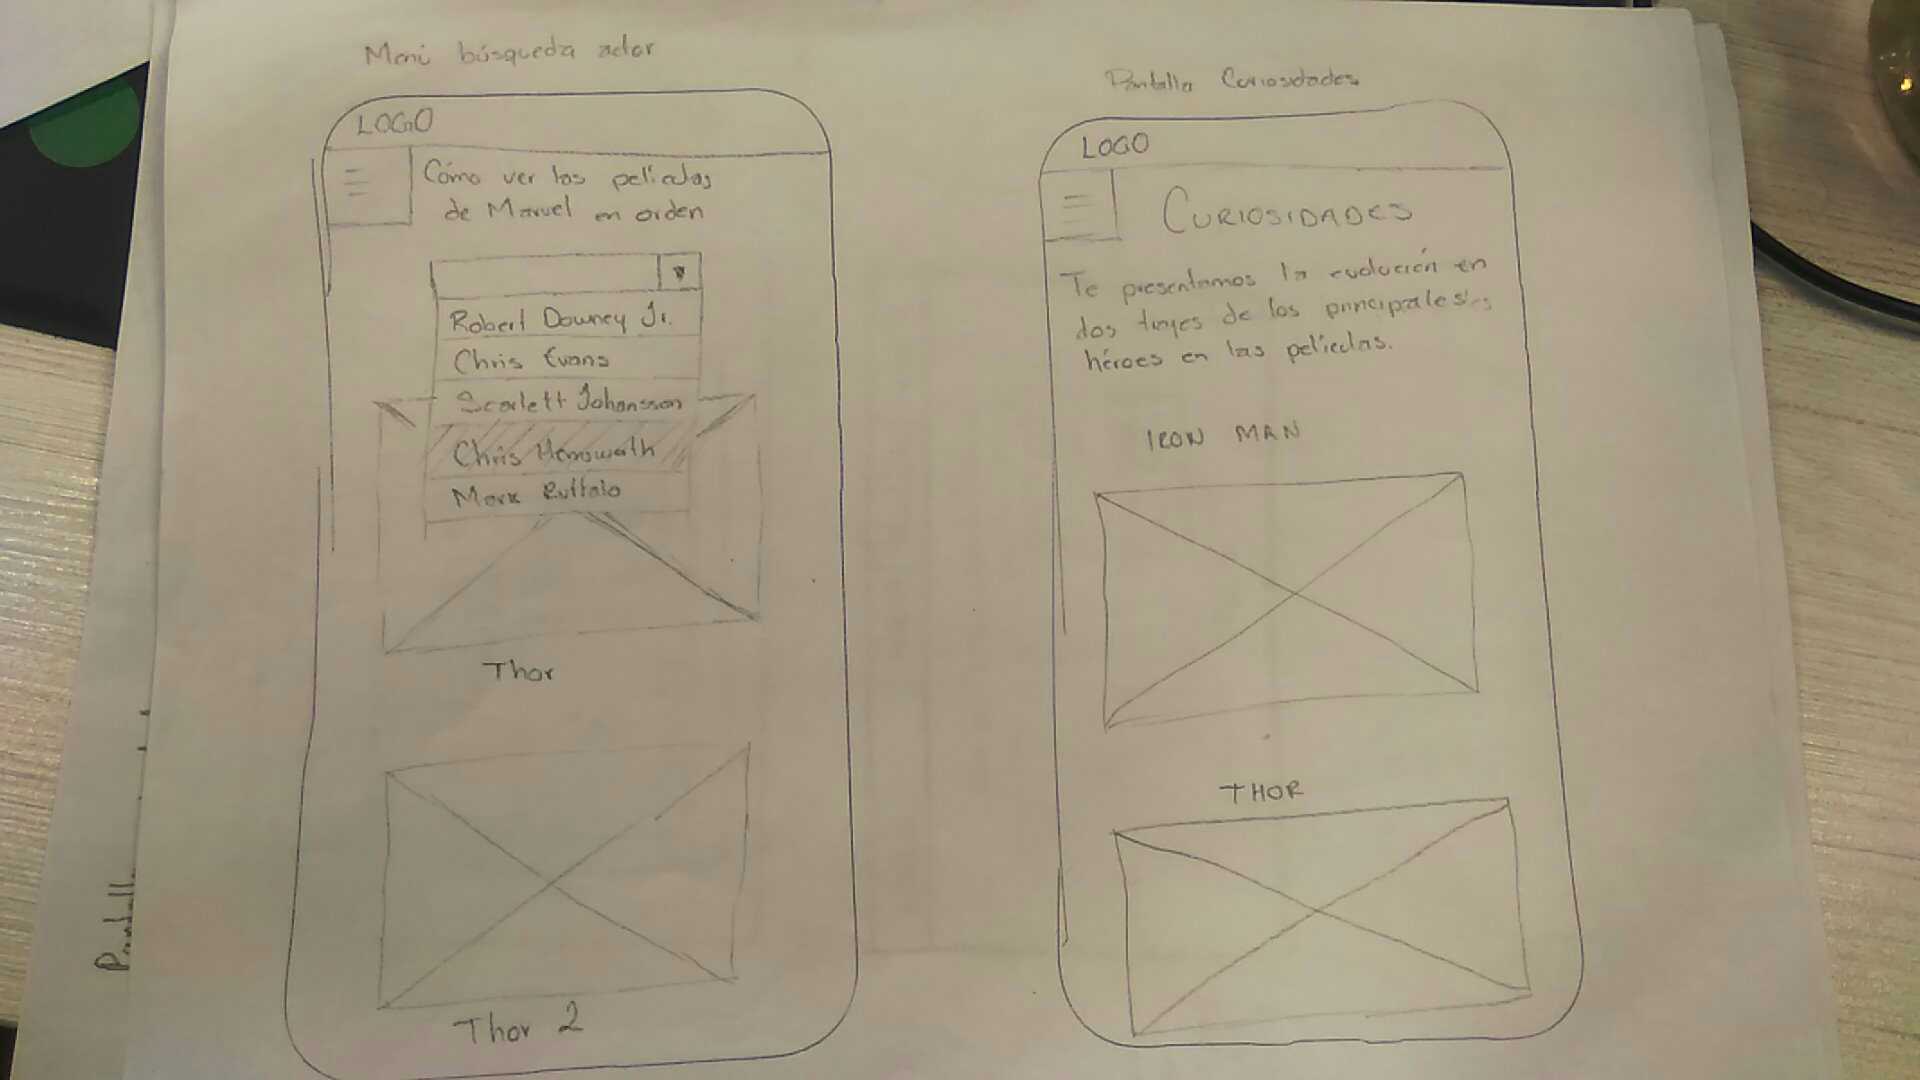 Menú búsqueda actor
LOGO
Cómo ver las películas
de Marvel en orden
Robert Downey Jr.
Chris Evans
Scarlett Johansson
Chris Hemsworth
Mark Ruffalo
Thor
Thor 2
Pantalla Curiosidades
LOGO
CURIOSIDADES
Te presentamos la evolución en
los trajes de los principales
héroes en las películas.
IRON MAN
THOR